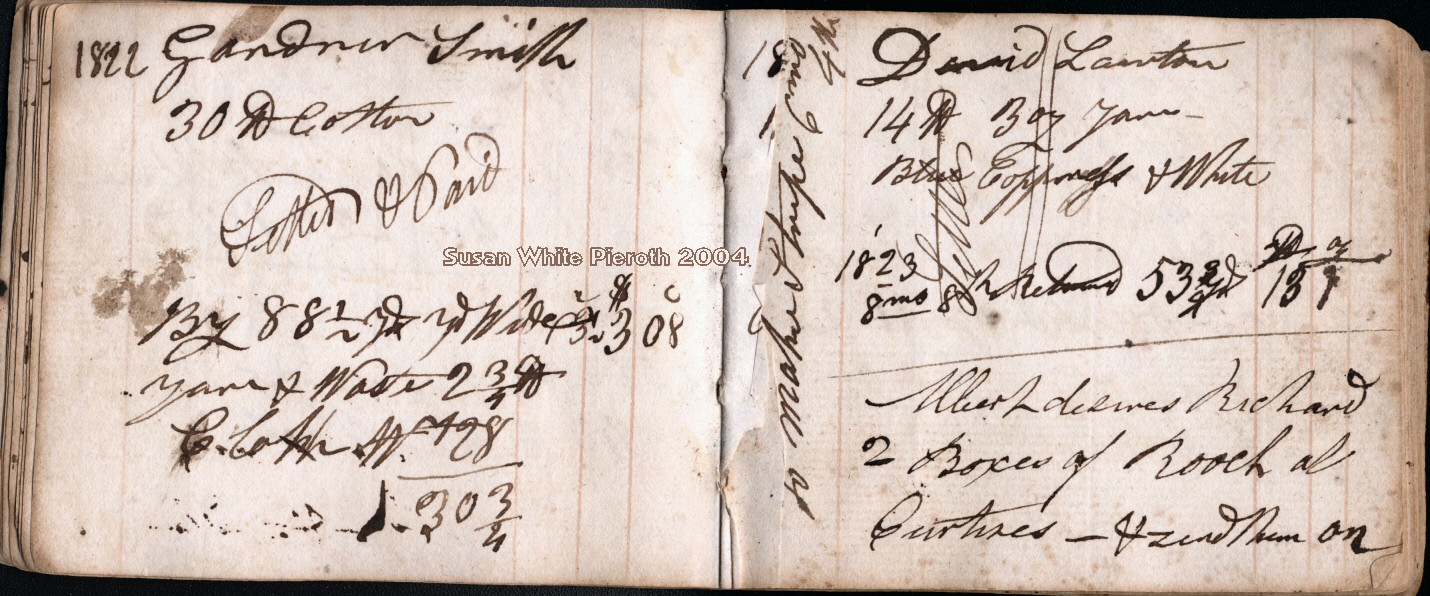 1822 Gardner Smith
30 lb Cotton
Settled & Paid
By 88 1/2 yd yd Wide 3 1/2 $3 08
yarn & Waste 2 3/4 lb
Cloth W 28
30 3/4
Susan White Pieroth 2004
18
to Make Stripe
David Lawton
14 lb 3 oz yarn
Blue Copperess & White
1823
8 mo 8 Returned 53 3/4 yd lb oz
Albert desires Richard
2 Boxes of at
Curtises — & send them on